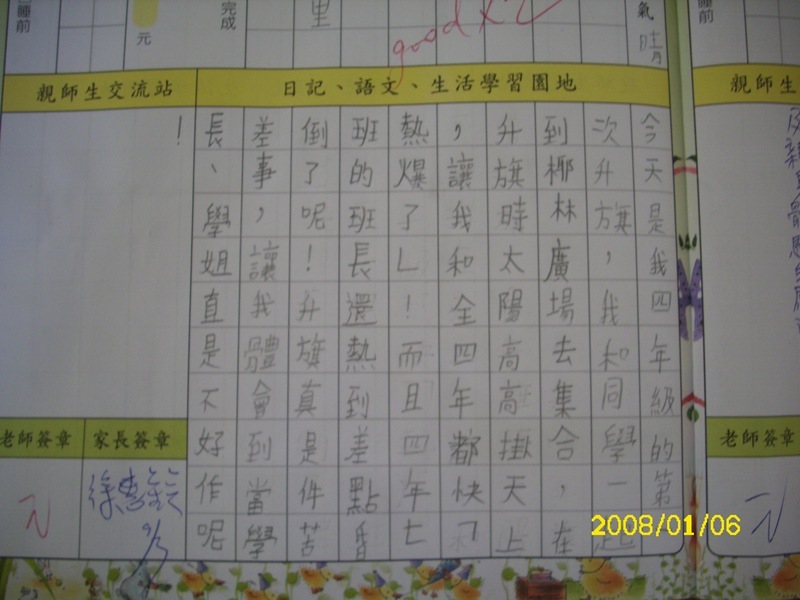 里
元
完成
睡前
氣
晴
睡前
good x2
親師生交流站
日記、語文、生活學習園地
親師生
今天是我四年級的第一
次升旗，我和同學一起
到椰林廣場去集合，在
升旗時太陽高高掛天上
，讓我和全四年都快「
熱爆了」！而且四年七
班的班長還熱到差點昏
倒了呢！升旗真是件苦
差事，讓我體會到當學
長、學姐直是不好作呢
！
老師簽章
家長簽章
老師簽章
2008/01/06